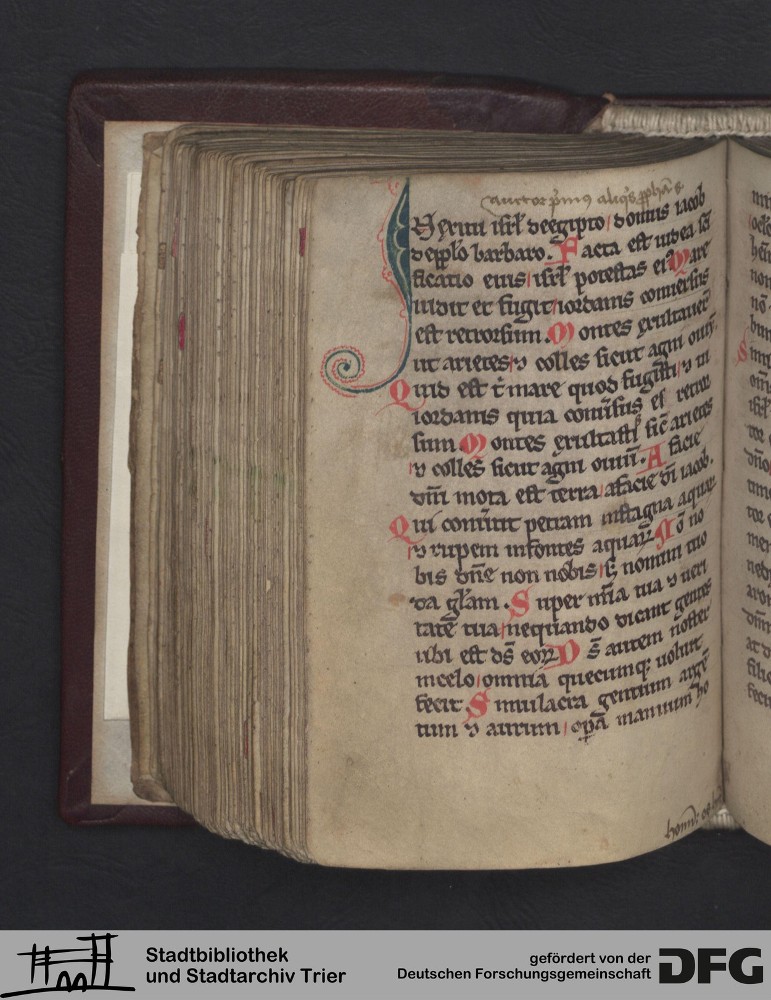 In exitu isrl' deegipto / domus iacob
depp̄lo barbaro. Facta est iudea sc̄i
ficatio eius / isrl' potestas ei' Mare
uidit et fugit / iordanis conuersus
est retrorsum. Montes exultauer̄t
ut arietes / ⁊ colles sicut agni ouiū.
Quid est t̄ mare quod fugisti / ⁊ tu
iordanis quia conuersus es retror
sum Montes exultastis sic̄ arietes
⁊ colles sicut agni ouiū. A facie
dn̄i mota est terra / afacie di iacob.
Qui conu̇tit petram instagna aquaꝝ
⁊ rupem infontes aquaꝝ No no
bis dn̄e non nobis / s; nomini tuo
da gl'am. Super mīa tua ⁊ ueri
tatē tua / nequando dicant gentes
ubi est ds̄ eoꝝ Ds̄ autem noster
incelo / omnia quecumq; uoluit
fecit. Simulacra gentium argē
tum ⁊ aurum / opa manuum ho
Stadtbibliothek
und Stadtarchiv Trier
gefördert von der
Deutschen Forschungsgemeinschaft
DFG